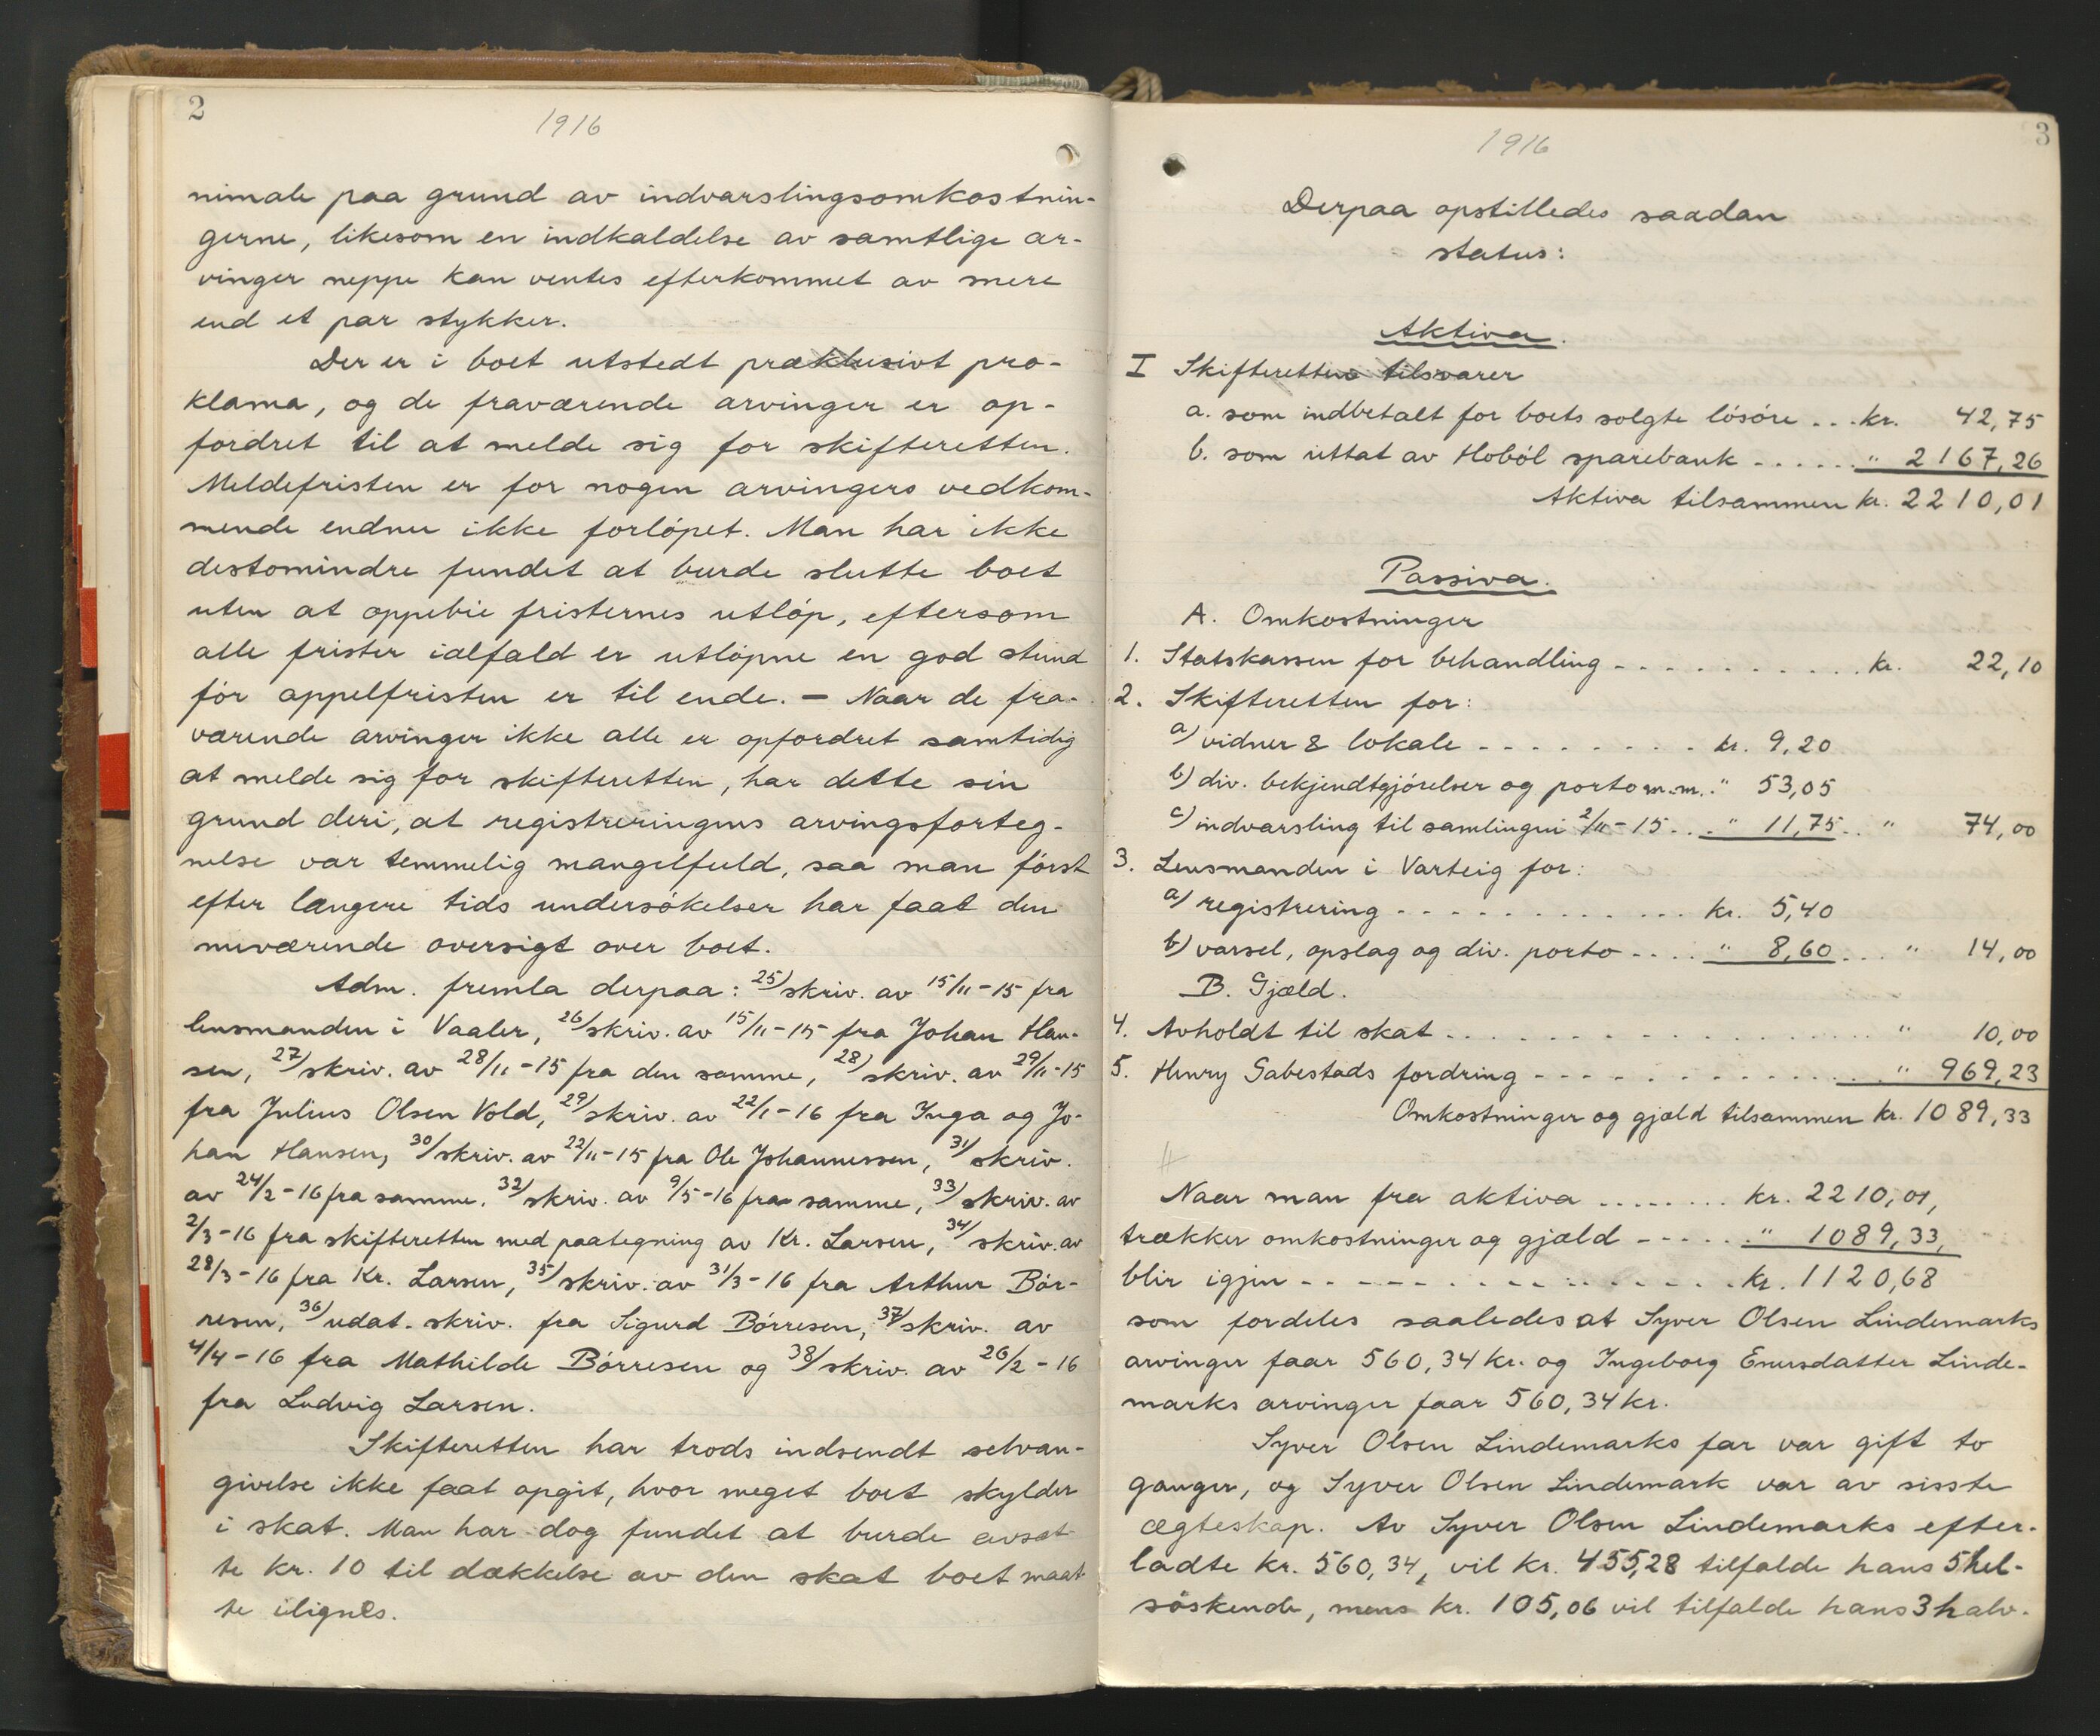 2
1916
nimale paa grund av indvarslingsomkostnin-
gerne, likesom en indkaldelse av samtlige ar-
vinger neppe kan ventes efterkommet av mere
end et par stykker.
Der er i boet utstedt præklusivt pro-
klama, og de fraværende arvinger er op-
fordret til at melde sig for skifteretten.
Meldefristen er for nogen arvingers vedkom-
mende endnu ikke forløpet. Man har ikke
destomindre fundet at burde slutte boet
uten at oppebie fristernes utløp, eftersom
alle frister ialfald er utløpne en god stund
før appelfristen er til ende. – Naar de fra-
værende arvinger ikke alle er opfordret samtidig
at melde sig for skifteretten, har dette sin
grund deri, at registreringens arvingsforteg-
nelse var temmelig mangelfuld, saa man først
efter længere tids undersøkelser har faat den
nuværende oversigt over boet.
Adm. fremla derpaa: 25) skriv. av 15/11-15 fra
lensmanden i Vaaler, 26) skriv. av 15/11-15 fra Johan Han-
sen, 27) skriv. av 28/11-15 fra den samme, 28) skriv. av 29/11-15
fra Julius Olsen Vold, 29) skriv. av 22/1-16 fra Inga og Jo-
han Hansen, 30) skriv. av 22/11-15 fra Ole Johannessen, 31) skriv.
av 24/2-16 fra samme. 32) skriv. av 9/5-16 fra samme, 33) skriv. av
2/3-16 fra skifteretten med paategning av Kr. Larsen, 34) skriv. av
28/3-16 fra Kr. Larsen, 35) skriv. av 31/3-16 fra Arthur Bør-
resen, 36) udat. skriv. fra Sigurd Børresen, 37) skriv. av
4/4-16 fra Mathilde Børresen og 38) skriv. av 26/2-16
fra Ludvig Larsen.
Skifteretten har trods indsendt selvan-
givelse ikke faat opgit, hvor meget boet skylder
i skat. Man har dog fundet at burde avsæt-
te kr. 10 til dækkelse av den skat boet maat-
te ilignes.
3
1916
Derpaa opstilledes saadan
status:
Aktiva.
I Skifteretten tilsvarer
a. som indbetalt for boets solgte løsøre ... kr. 42,75
b. som uttat av Hobøl sparebank ...... " 2167,26
Aktiva tilsammen kr. 2210,01
Passiva.
A. Omkostninger
1. Statskassen for behandling - - - - - - - - - - . kr. 22,10
2. Skifteretten for:
a) vidner & lokale - - - - - - - - . kr. 9,20
b) div. bekjendtgjørelser og porto m.m. " 53,05
c) indvarsling til samlingen 2/11-15 ... " 11,75 .. " 74,00
3. Lensmanden i Varteig for:
a) registrering - - - - - - - - - - - - . kr. 5,40
b) varsel, opslag og div. porto .... " 8,60 ... " 14,00
B. Gjæld.
4. Avholdt til skat . . . . . . . . . . . . . . . . . . . " 10,00
5. Henry Gabestads fordring - - - - - - - - - - - - . . . " 969,23
Omkostninger og gjæld tilsammen kr. 1089,33
Naar man fra aktiva ........ kr. 2210,01,
trækker omkostninger og gjæld - - - - - . " 1089,33,
blir igjen - - - - - - - - - - - - - - - - . kr. 1120,68
som fordeles saaledes at Syver Olsen Lindemarks
arvinger faar 560,34 kr. og Ingeborg Enersdatter Linde-
marks arvinger faar 560,34 kr.
Syver Olsen Lindemarks far var gift to
ganger, og Syver Olsen Lindemark var av sisste
ægteskap. Av Syver Olsen Lindemarks efter-
ladte kr. 560,34, vil kr. 455,28 tilfalde hans 5 hel-
søskende, mens kr. 105,06 vil tilfalde hans 3 halv-